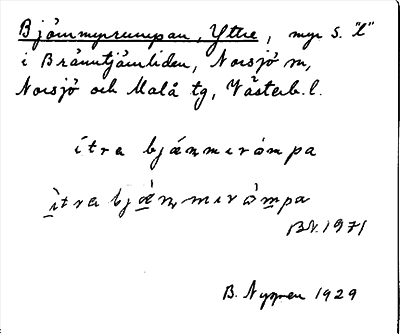 Björnmyrrumpan, Yttre, myr S. "l"
i Bränntjärnliden, Norsjö sn,
Norsjö och Malå tg, Västerb. l.
ítra bjǽnmıròmpa
ìtra bjæ̀n̥mıròmpa
B.N. 1971
B. Nygren 1929